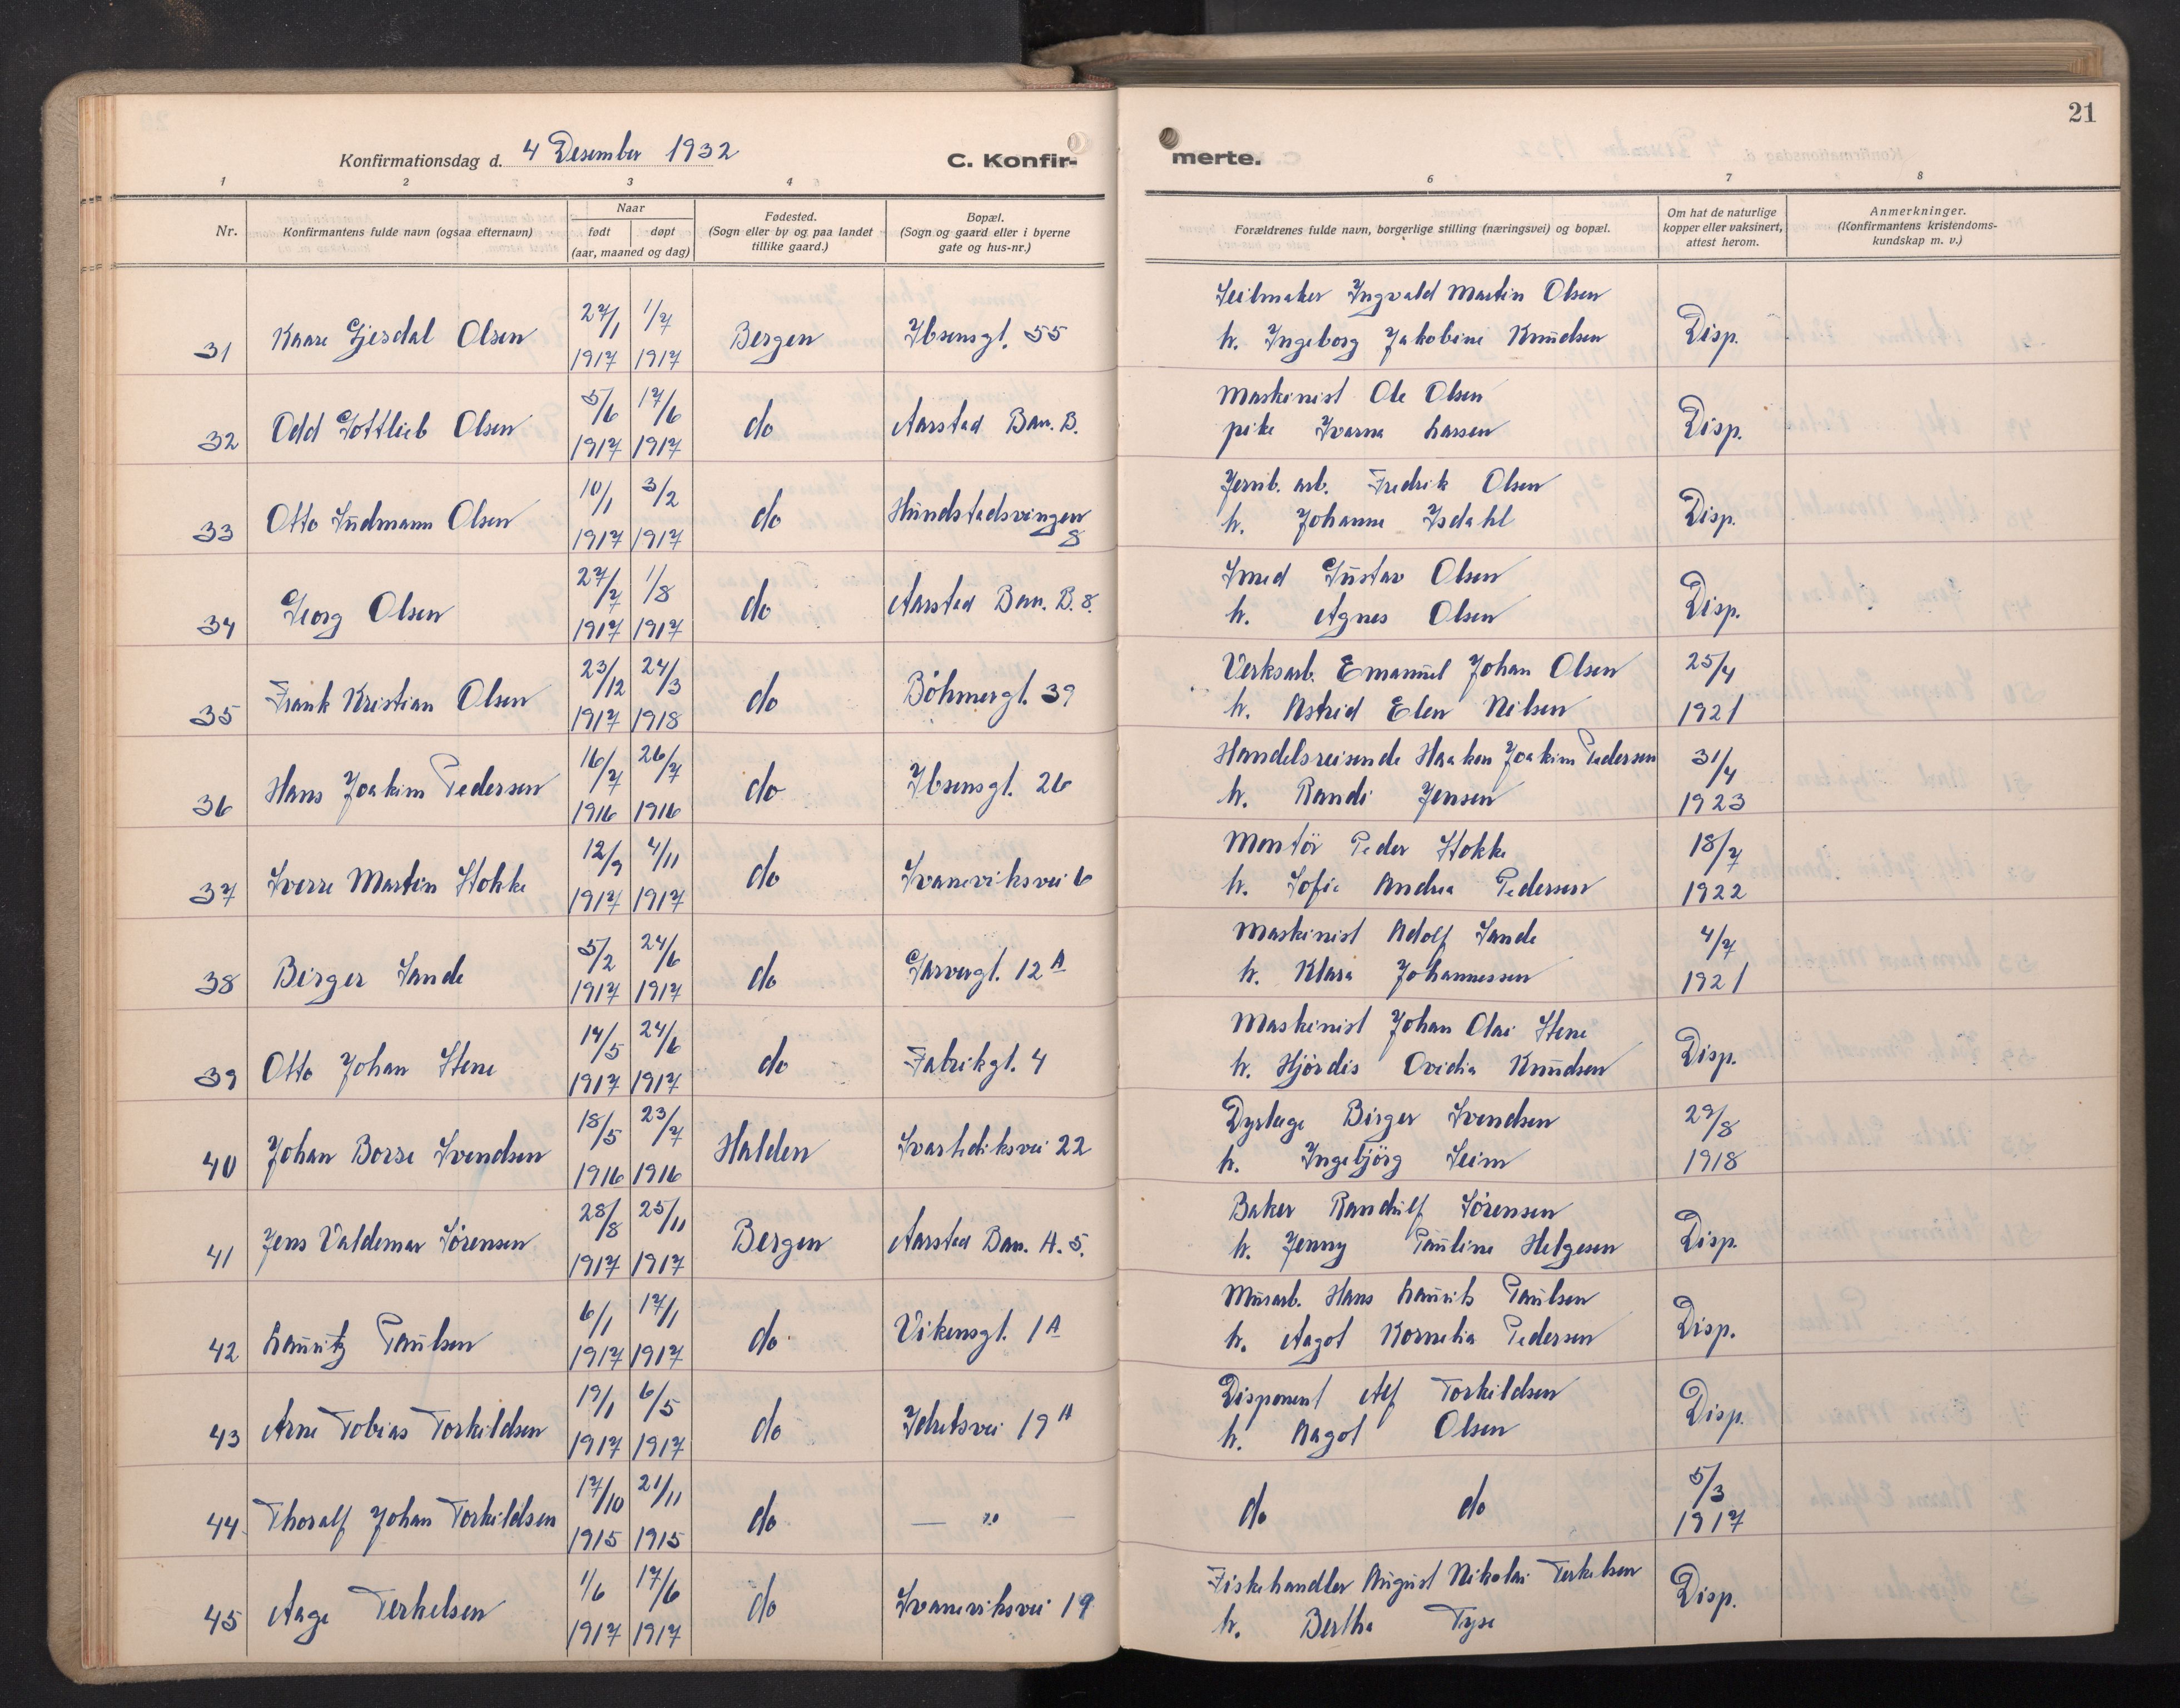 Konfirmationsdag d. 4 Desember 1932
C. Konfir-
merte.
21
1 2 3 4 6 7 8
Nr.
Konfirmantens fulde navn (ogsaa efternavn)
Naar
født døpt
(aar, maaned og dag)
Fødested.
(Sogn eller by og paa landet
tillike gaard.)
Bopæl.
(Sogn og gaard eller i byerne
gate og hus-nr.)
Forældrenes fulde navn, borgerlige stilling (næringsvei) og bopæl.
Om hat de naturlige
kopper eller vaksinert,
attest herom.
Anmerkninger.
(Konfirmantens kristendoms-
kundskap m. v.)
31 Kaare Gjesdal Olsen 27/1 1917 1/7 1917 Bergen Ibsensgt. 55 Seilmaker Ingvald Martin Olsen
h. Ingeborg Jakobine Knudsen Disp.
32 Odd Gottlieb Olsen 5/6 1917 17/6 1917 do Aarstad Bar. B. Maskinist Ole Olsen
pike Ivarna Larsen Disp.
33 Otto Ludmann Olsen 10/1 1917 3/2 1917 do Hundstadsvingen 8 Jernb. arb. Fredrik Olsen
h. Johanna Isdahl Disp.
34 Georg Olsen 27/7 1917 1/8 1917 do Aarstad Bar. B. 8. Smed Gustav Olsen
h. Agnes Olsen Disp.
35 Frank Kristian Olsen 23/12 1917 24/3 1918 do Böhmergt. 39 Verksarb. Emanuel Johan Olsen
h. Astrid Elen Nilsen 25/4 1921
36 Hans Joakim Pedersen 16/7 1916 26/7 1916 do Ibsensgt. 26 Handelsreisende Haakon Joakim Pedersen
h. Randi Jensen 31/4 1923
37 Sverre Martin Stokke 12/9 1917 4/11 1917 do Svaneviksvei 6 Montör Peder Stokke
h. Sofie Andrea Pedersen 18/7 1922
38 Birger Sande 5/2 1917 24/6 1917 do Garvergt. 12 A Maskinist Adolf Sande
h. Klara Johannessen 4/7 1921
39 Otto Johan Stene 14/5 1917 24/6 1917 do Fabrikgt. 4 Maskinist Johan Olai Stene
h. Hjördis Ovidia Knudsen Disp.
40 Johan Borse Svendsen 18/5 1916 23/7 1916 Halden Svartediksvei 22 Dyrlege Birger Svendsen
h. Ingebjörg Seim 29/8 1918
41 Jens Valdemar Sörensen 28/8 1917 25/11 1917 Bergen Aarstad Bar. A. 5. Baker Randulf Sörensen
h. Jenny Pauline Helgesen Disp.
42 Lauritz Paulsen 6/1 1917 17/1 1917 do Vikensgt. 1 A Murarb. Hans Laurits Paulsen
h. Aagot Kornelia Pedersen Disp.
43 Arne Tobias Torkildsen 19/1 1917 6/5 1917 do Idretsvei 19 A Disponent Alf Torkildsen
h. Aagot Olsen Disp.
44 Thoralf Johan Torkildsen 17/10 1915 21/11 1915 do — " — do do 5/3 1917
45 Aage Terkelsen 1/6 1917 17/6 1917 do Svaneviksvei 19 Fiskehandler August Nikolai Terkelsen
h. Bertha Tyse Disp.